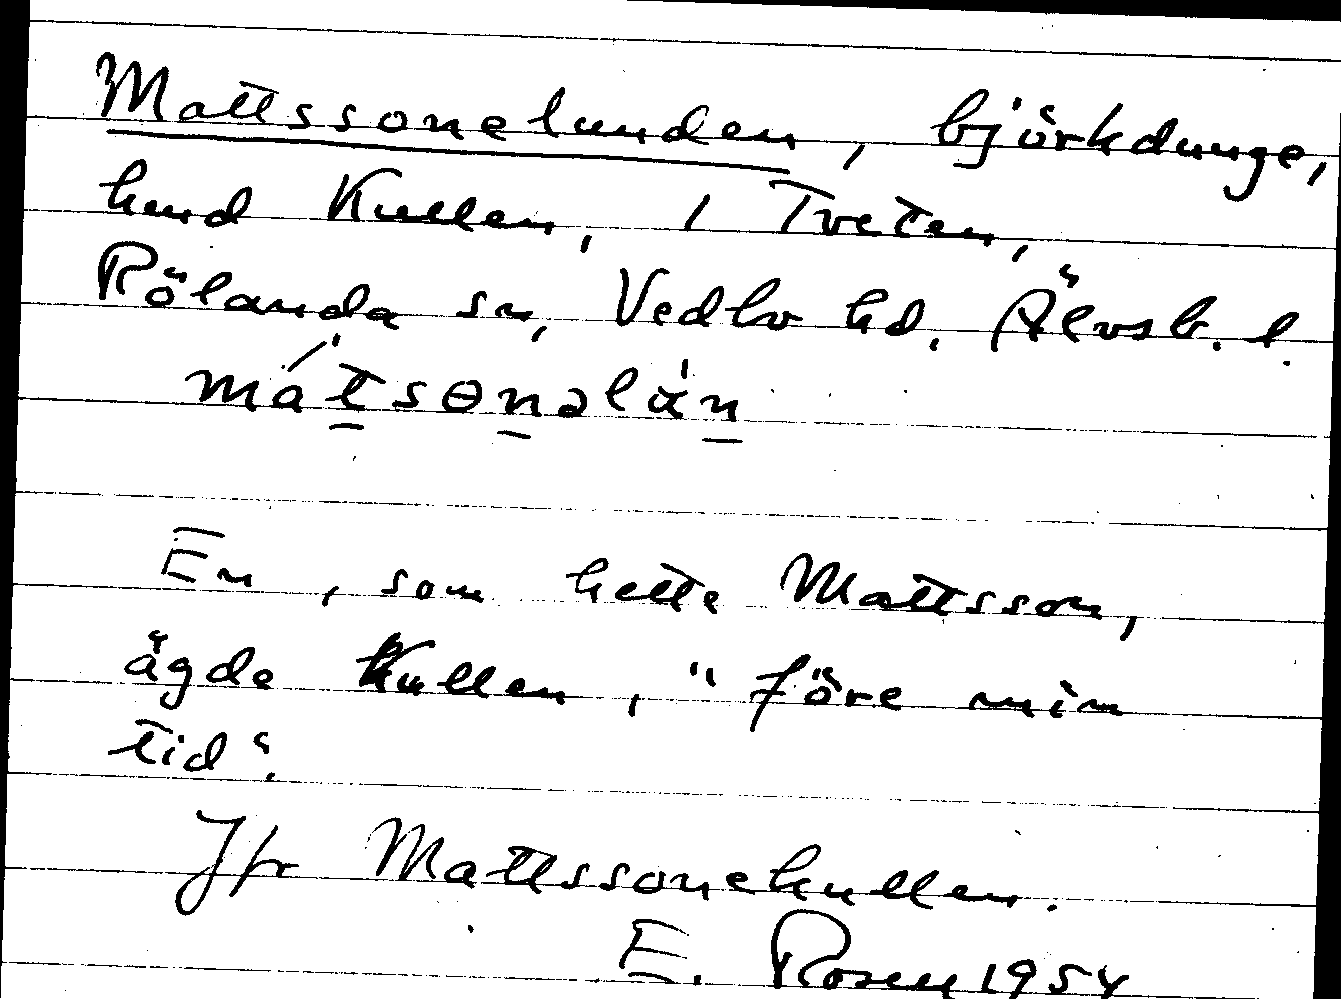 Mattssonelunden, björkdunge,
hmd Kullen, i Tveten,
Rölanda sn, Vedbo hd. Älvsb. l.
mátsɵnəlα̍n
En, som hette Mattsson,
ägde Kullen, "före min
tid".
Jfr Mattssonekullen.
E. Rosen 1954